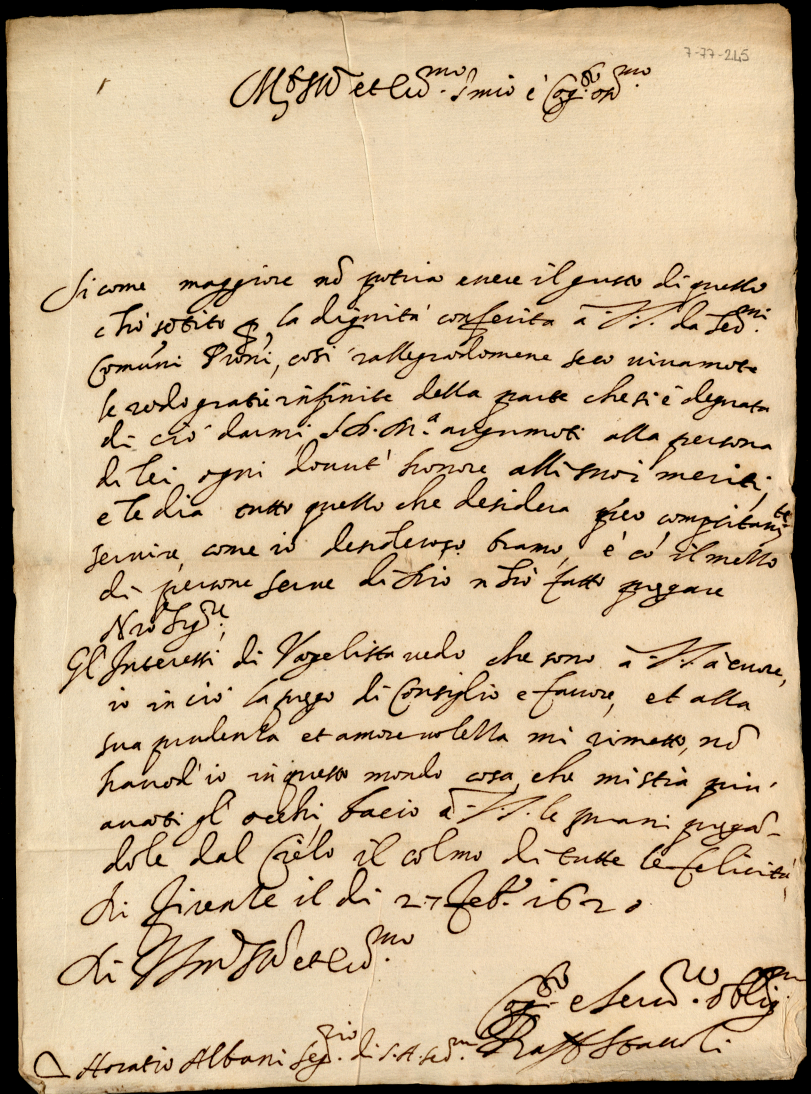 7-77-245
Si come maggiore nõ potria essere il gusto di quello
c'hò sẽtito p la dignità conferita à V.S. da ser.mi
Comuñi Proñi, così rallegrãdomene seco vivamẽte
le rẽdo gratie infinite della parte che si è degnata
di ciò darmi, S.D.M.ta augumẽti alla persona
di lei ogni dovut' honore alli suoi meriti,
e le dia tutto quello che desidera
servire, come io desideroso bramo, e cõ il mezzo
di persone serve di Dio n' hò fatto pregare
Nro Sig.re
Gl'Interessi di Vãgelista vedo che sono à V.S. à cuore,
io in ciò la prego di Consiglio e favore, et alla
sua prudenza et amorevolezza mi rimetto, nõ
havẽd' io in questo mondo cosa che mi stia più
avãti gl' occhi, bacio à V.S. le mani pregã-
dole dal Cielo il colmo di tutte le felicità,
di Firenze il di 27 Feb.o 1620
Di V.S.
e Ser.re oblig.mo
Raff. Staccoli
Horatio Albani Seg.rio di S.A. Ser.ma